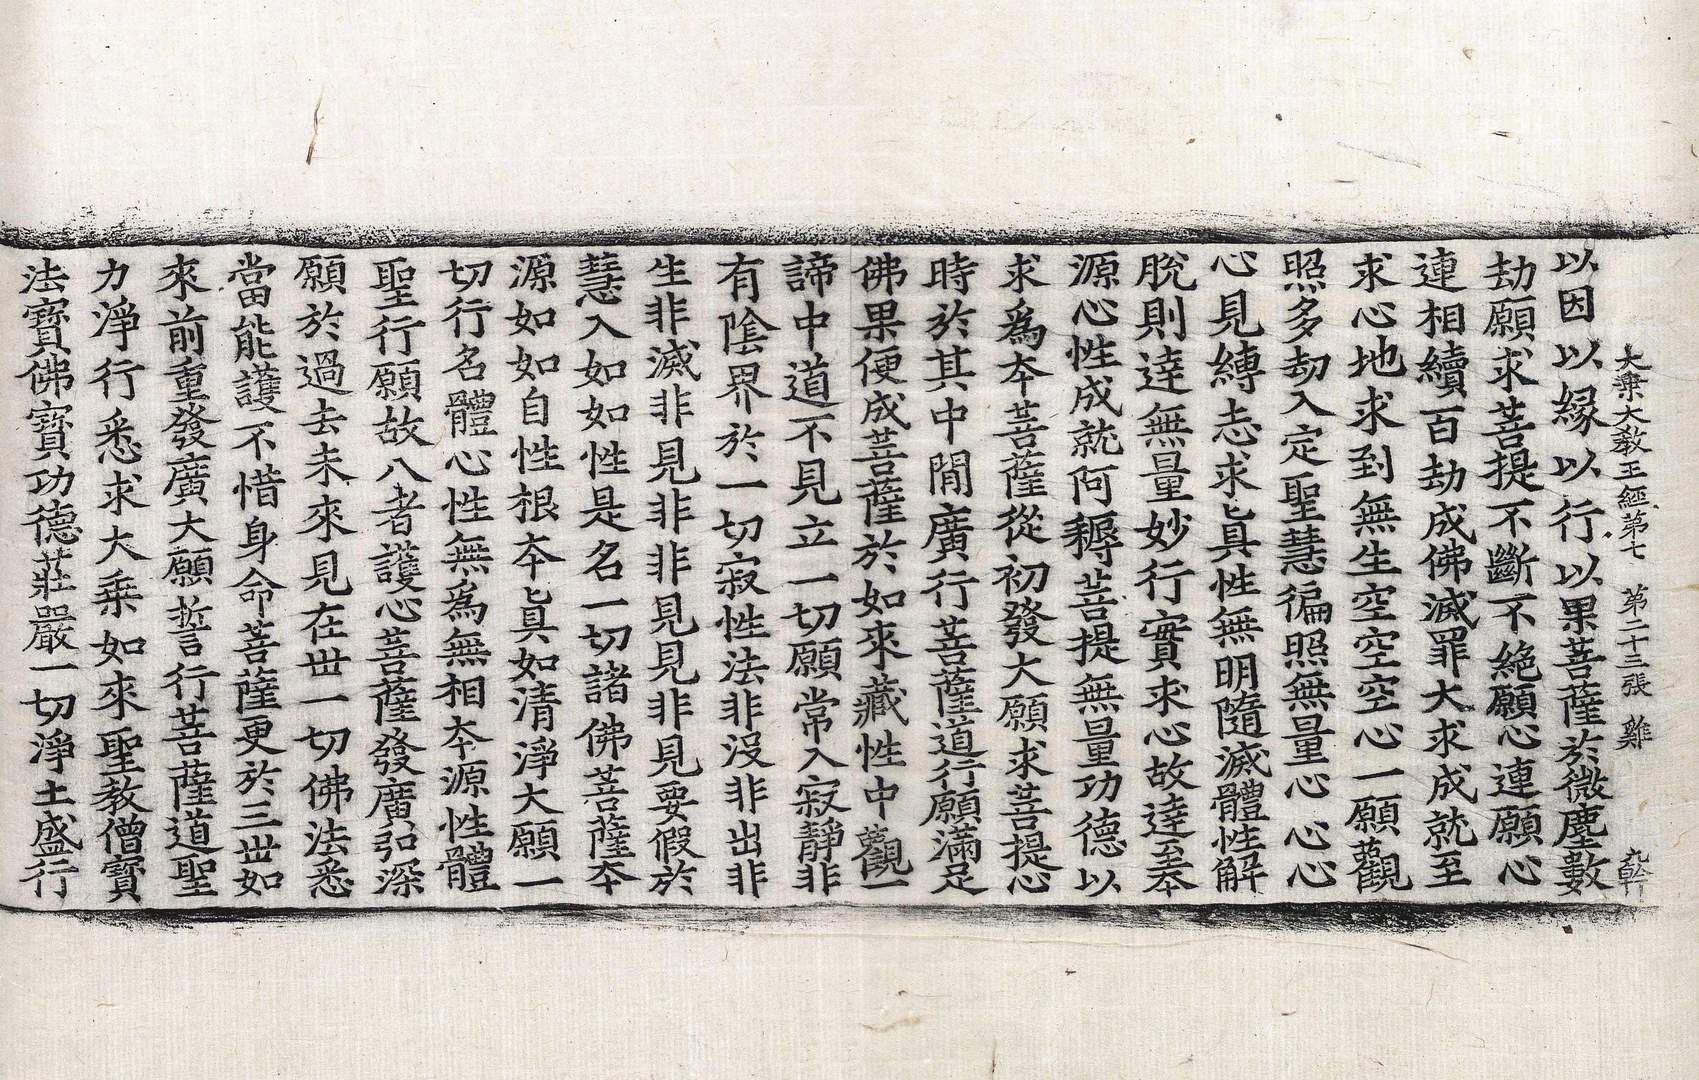 大乗大教王經第七　第二十三張　雞
以因以緣以行以果菩薩於微塵數
劫願求菩提不斷不絶願心連願心
連相續百劫成佛滅罪大求成就至
求心地求到無生空空空心一願觀
照多劫入定聖慧徧照無量心心心
心見縛恚求眞性無明隨滅體性解
脫則逹無量妙行實求心故逹至夲
源心性成就阿耨菩提無量功德以
求爲夲菩薩從初發大願求菩提心
時於其中閒廣行菩薩道行願滿足
佛果便成菩薩於如來藏性中觀一
諦中道不見立一切願常入寂靜非
有陰界於一切寂性法非沒非出非
生非滅非見非非見見非見要假於
慧入如如性是名一切諸佛菩薩夲
源如如自性根夲眞如清淨大願一
切行名體心性無爲無相夲源性體
聖行願故八者護心菩薩發廣弘深
願於過去未來見在世一切佛法悉
當能護不惜身命菩薩更於三世如
來前重發廣大願誓言行菩薩道聖
力淨行悉求大乗如來聖教僧寶
法寶佛寶功德莊嚴一切淨土盛行